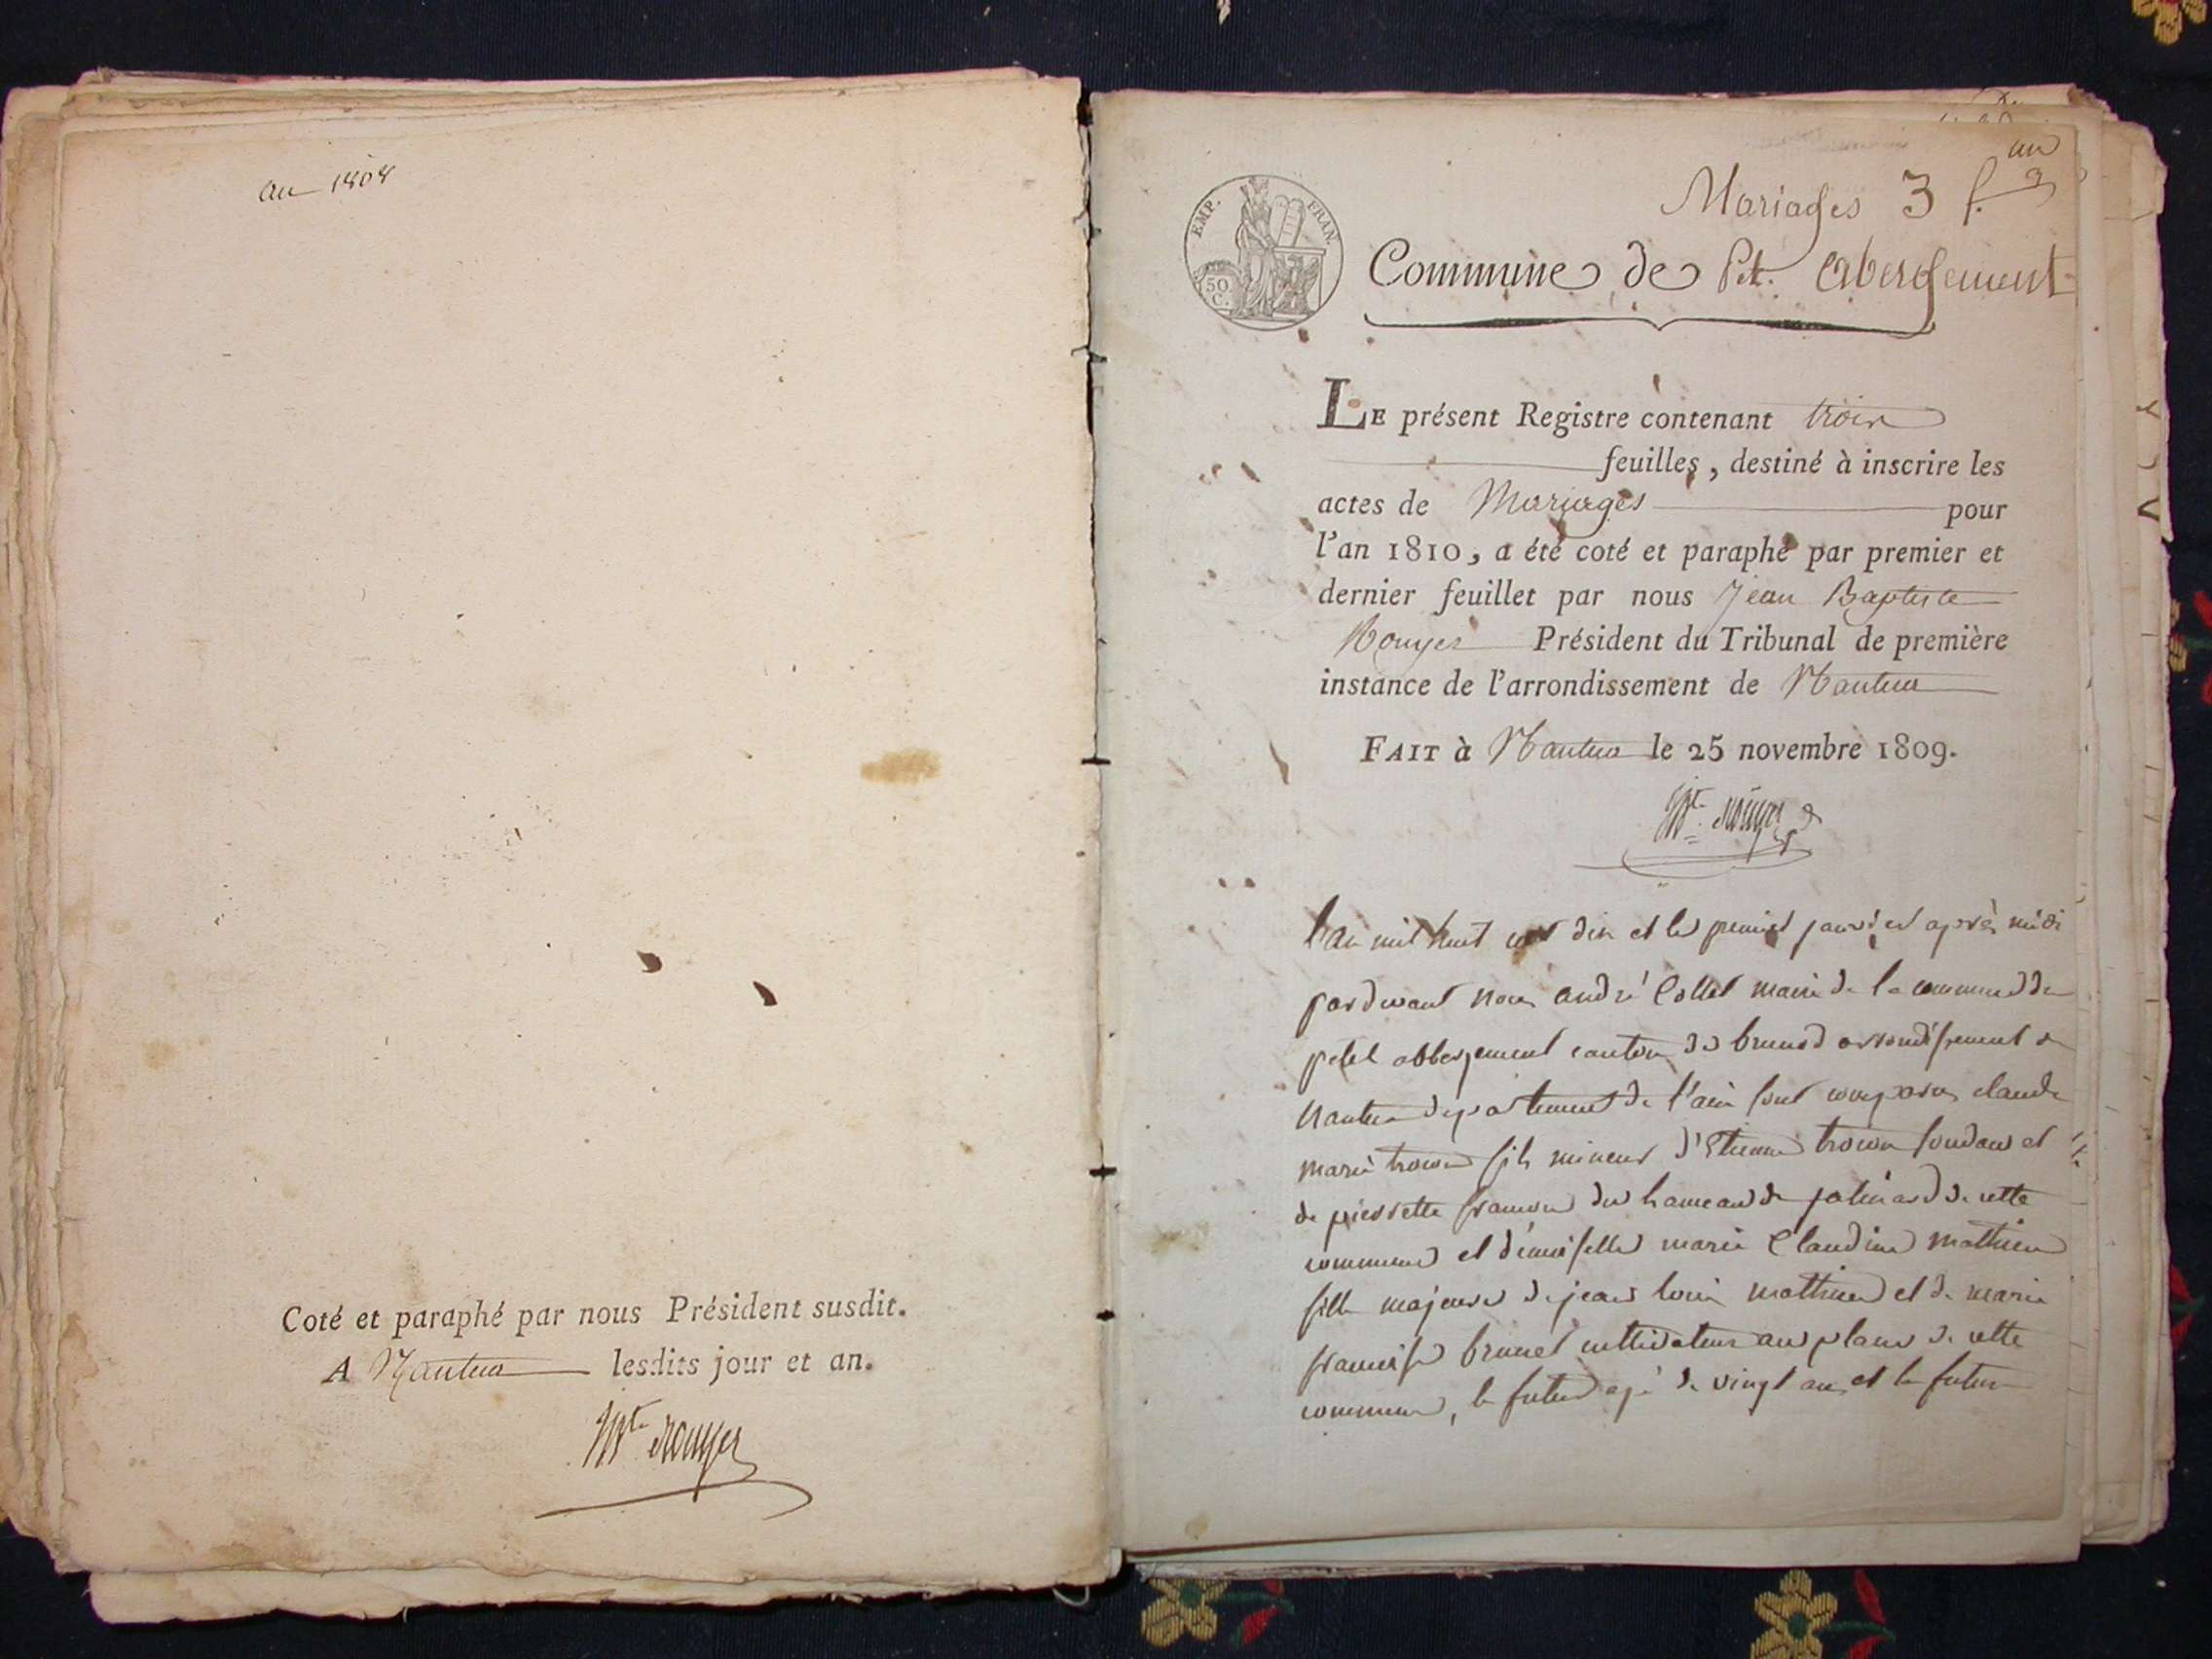 an 1808
Coté et paraphé par nous Président susdit.
A Nantua lesdits jour et an.
JBte Rouyer
un
EMP. FRAN.
50
C.
Mariages 3 f.
Commune de Pet. Abergement
LE présent Registre contenant trois
feuilles, destiné à inscrire les
actes de Mariages pour
l'an 1810, a été coté et paraphé par premier et
dernier feuillet par nous Jean Baptiste
Rouyer Président du Tribunal de première
instance de l'arrondissement de Nantua
FAIT à Nantua le 25 novembre 1809.
JBte Rouyer
L'an mil huit cent dix et le premier janvier après midi
pardevant nous andré Collet maire de la commune du
petit abbergement canton de brenod arrondissement de
nantua departement de l'ain sont comparus claude
marie fils mineur d'Etienne et
de pierrette du hameau de de cette
commune et demoiselle marie Claudine mathieu
fille majeure de jean louis mathieu et de marie
françoise brunet cultivateur au plans de cette
commune, le futur agé de vingt ans et la future